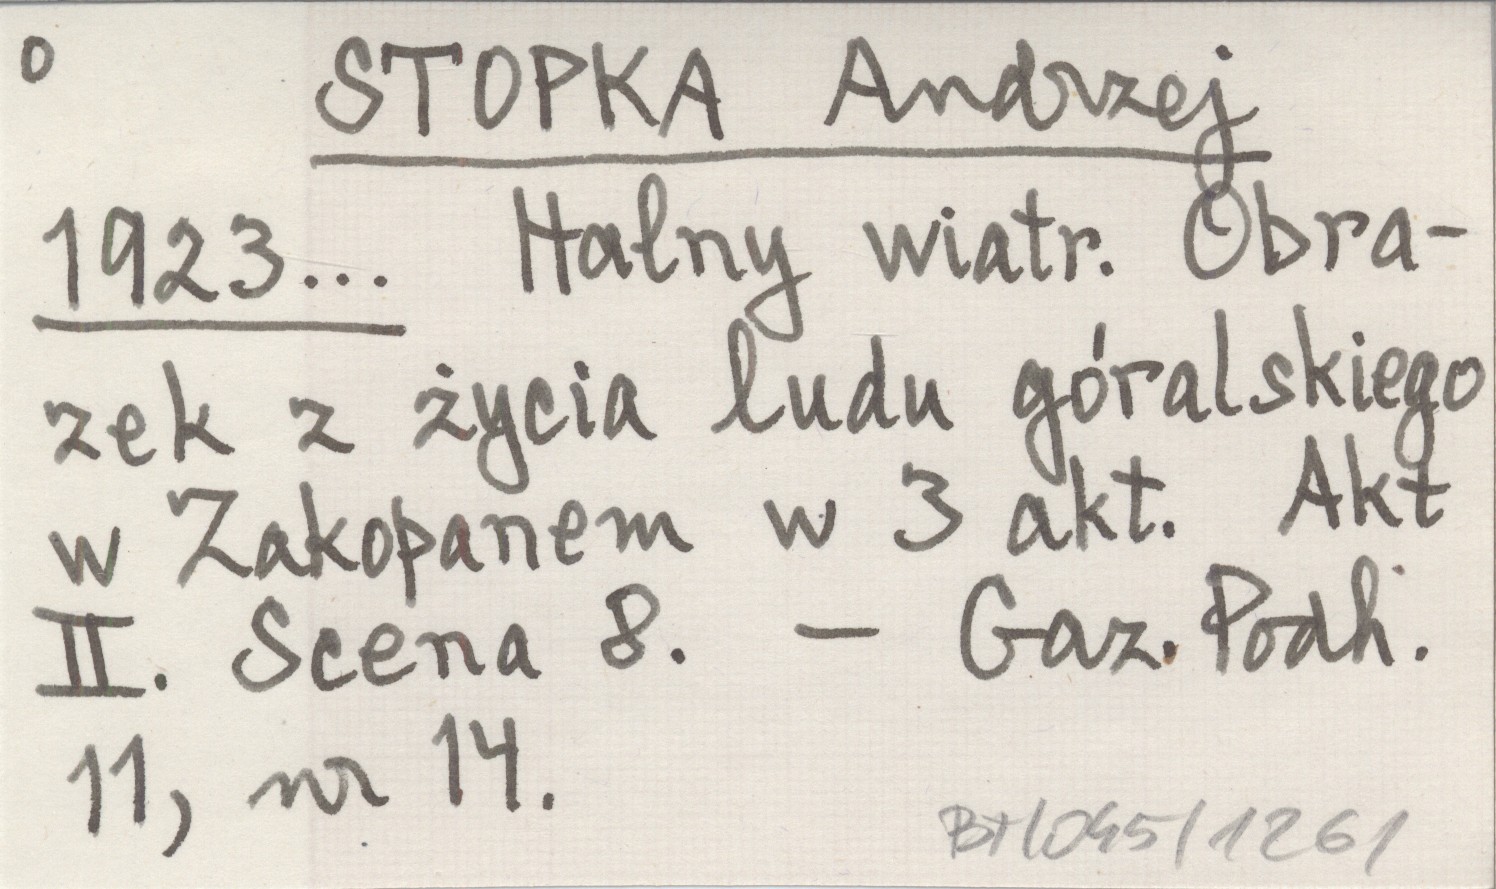 o STOPKA Andrzej
1923... Halny wiatr. Obra-
zek z życia ludu góralskiego
w Zakopanem w 3 akt. Akt
II. Scena 8. — Gaz. Podh.
11, nr 14.
/045/1261